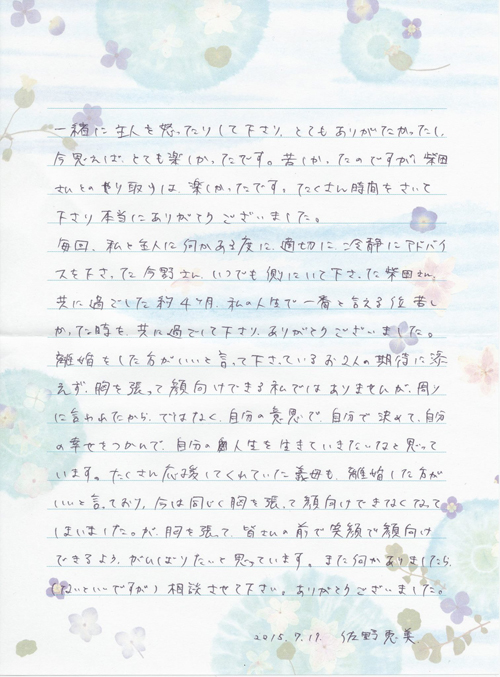 一緒に主人を怒ったりして下さり、とてもありがたかったし、
今思えば、とても楽しかったです。苦しかったのですが、柴田
さんとのやり取りは、楽しかったです。たくさん時間をさいて
下さり本当にありがとうございました。
毎回、私と主人に何かある度に、適切に、冷静にアドバイ
スを下さった今野さん、いつでも側にいて下さった柴田さん。
共に過ごした約4ヶ月、私の人生で一番と言える位苦し
かった時を、共に過ごして下さり、ありがとうございました。
離婚をした方がいいと言って下さっているお2人の期待に添
えず、胸を張って顔向けできる私ではありませんが、周り
に言われたから、ではなく、自分の意思で、自分で決めて、自分
の幸せをつかんで、自分の人生を生きていきたいなと思って
います。たくさん応援してくれていた義母も、離婚した方が
いいと言っており、今は同じく胸を張って顔向けできなくなって
しまいました。が、胸を張って、皆さんの前で笑顔で顔向け
できるよう、がんばりたいと思っています。また何かありましたら、
(ないといいですが)相談させて下さい。ありがとうございました。
2015.7.19 佐野恵美